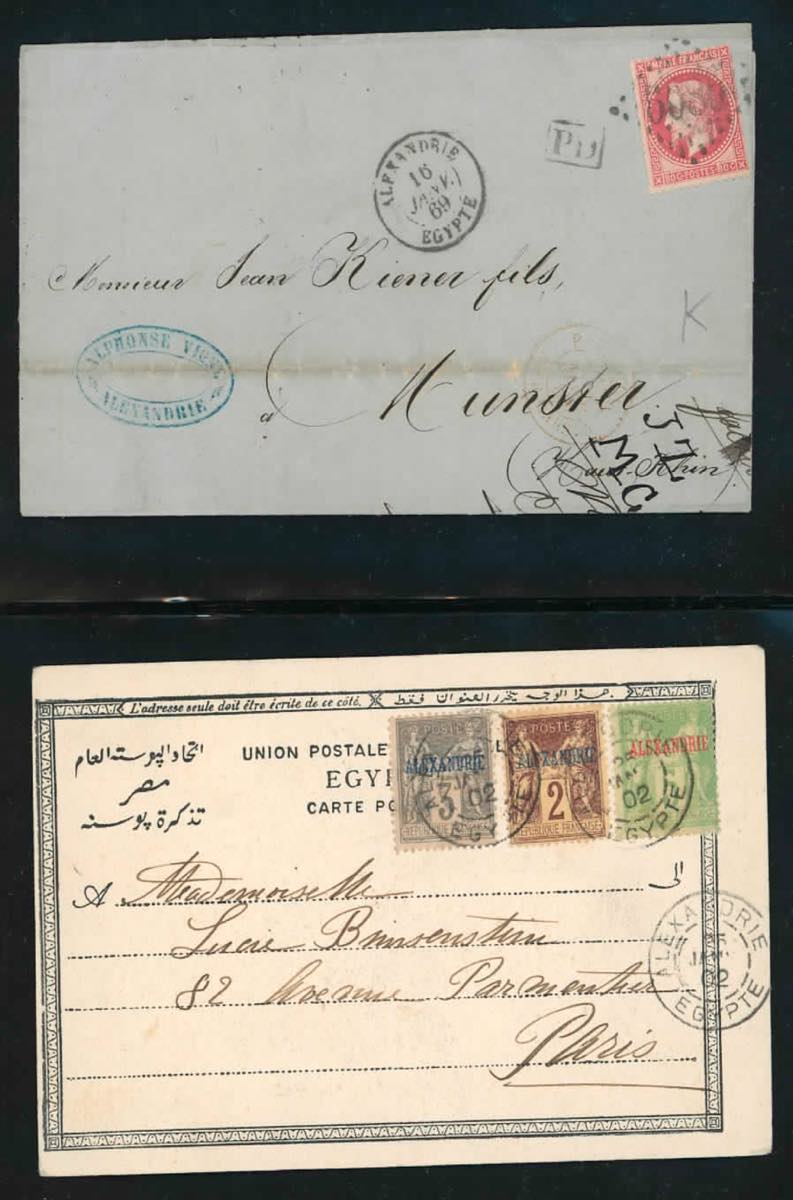 EMPIRE FRANÇAIS
80C POSTES 80C
PD
ALEXANDRIE
16
JANV.
69
EGYPTE
Monsieur Jean Kiener fils,
ALPHONSE
ALEXANDRIE
à Munster
K
Haut-Rhin
L'adresse seule doit être écrite de ce côté.
هذا الوجه يحرر العنوان فقط.
اتحاد البوسته العام
مصر
تذكرة بوسته
UNION POSTALE
EGY
CARTE PO
POSTE
ALEXANDRIE
3
REPUBLIQUE FRANÇAISE
POSTE
ALEXANDRIE
2
REPUBLIQUE FRANÇAISE
ALEXANDRIE
02
EGYPTE
02
EGYPTE
A Mademoiselle
الى
Lucie
82 Avenue Parmentier
Paris
ALEXANDRIE
JANV.
02
EGYPTE